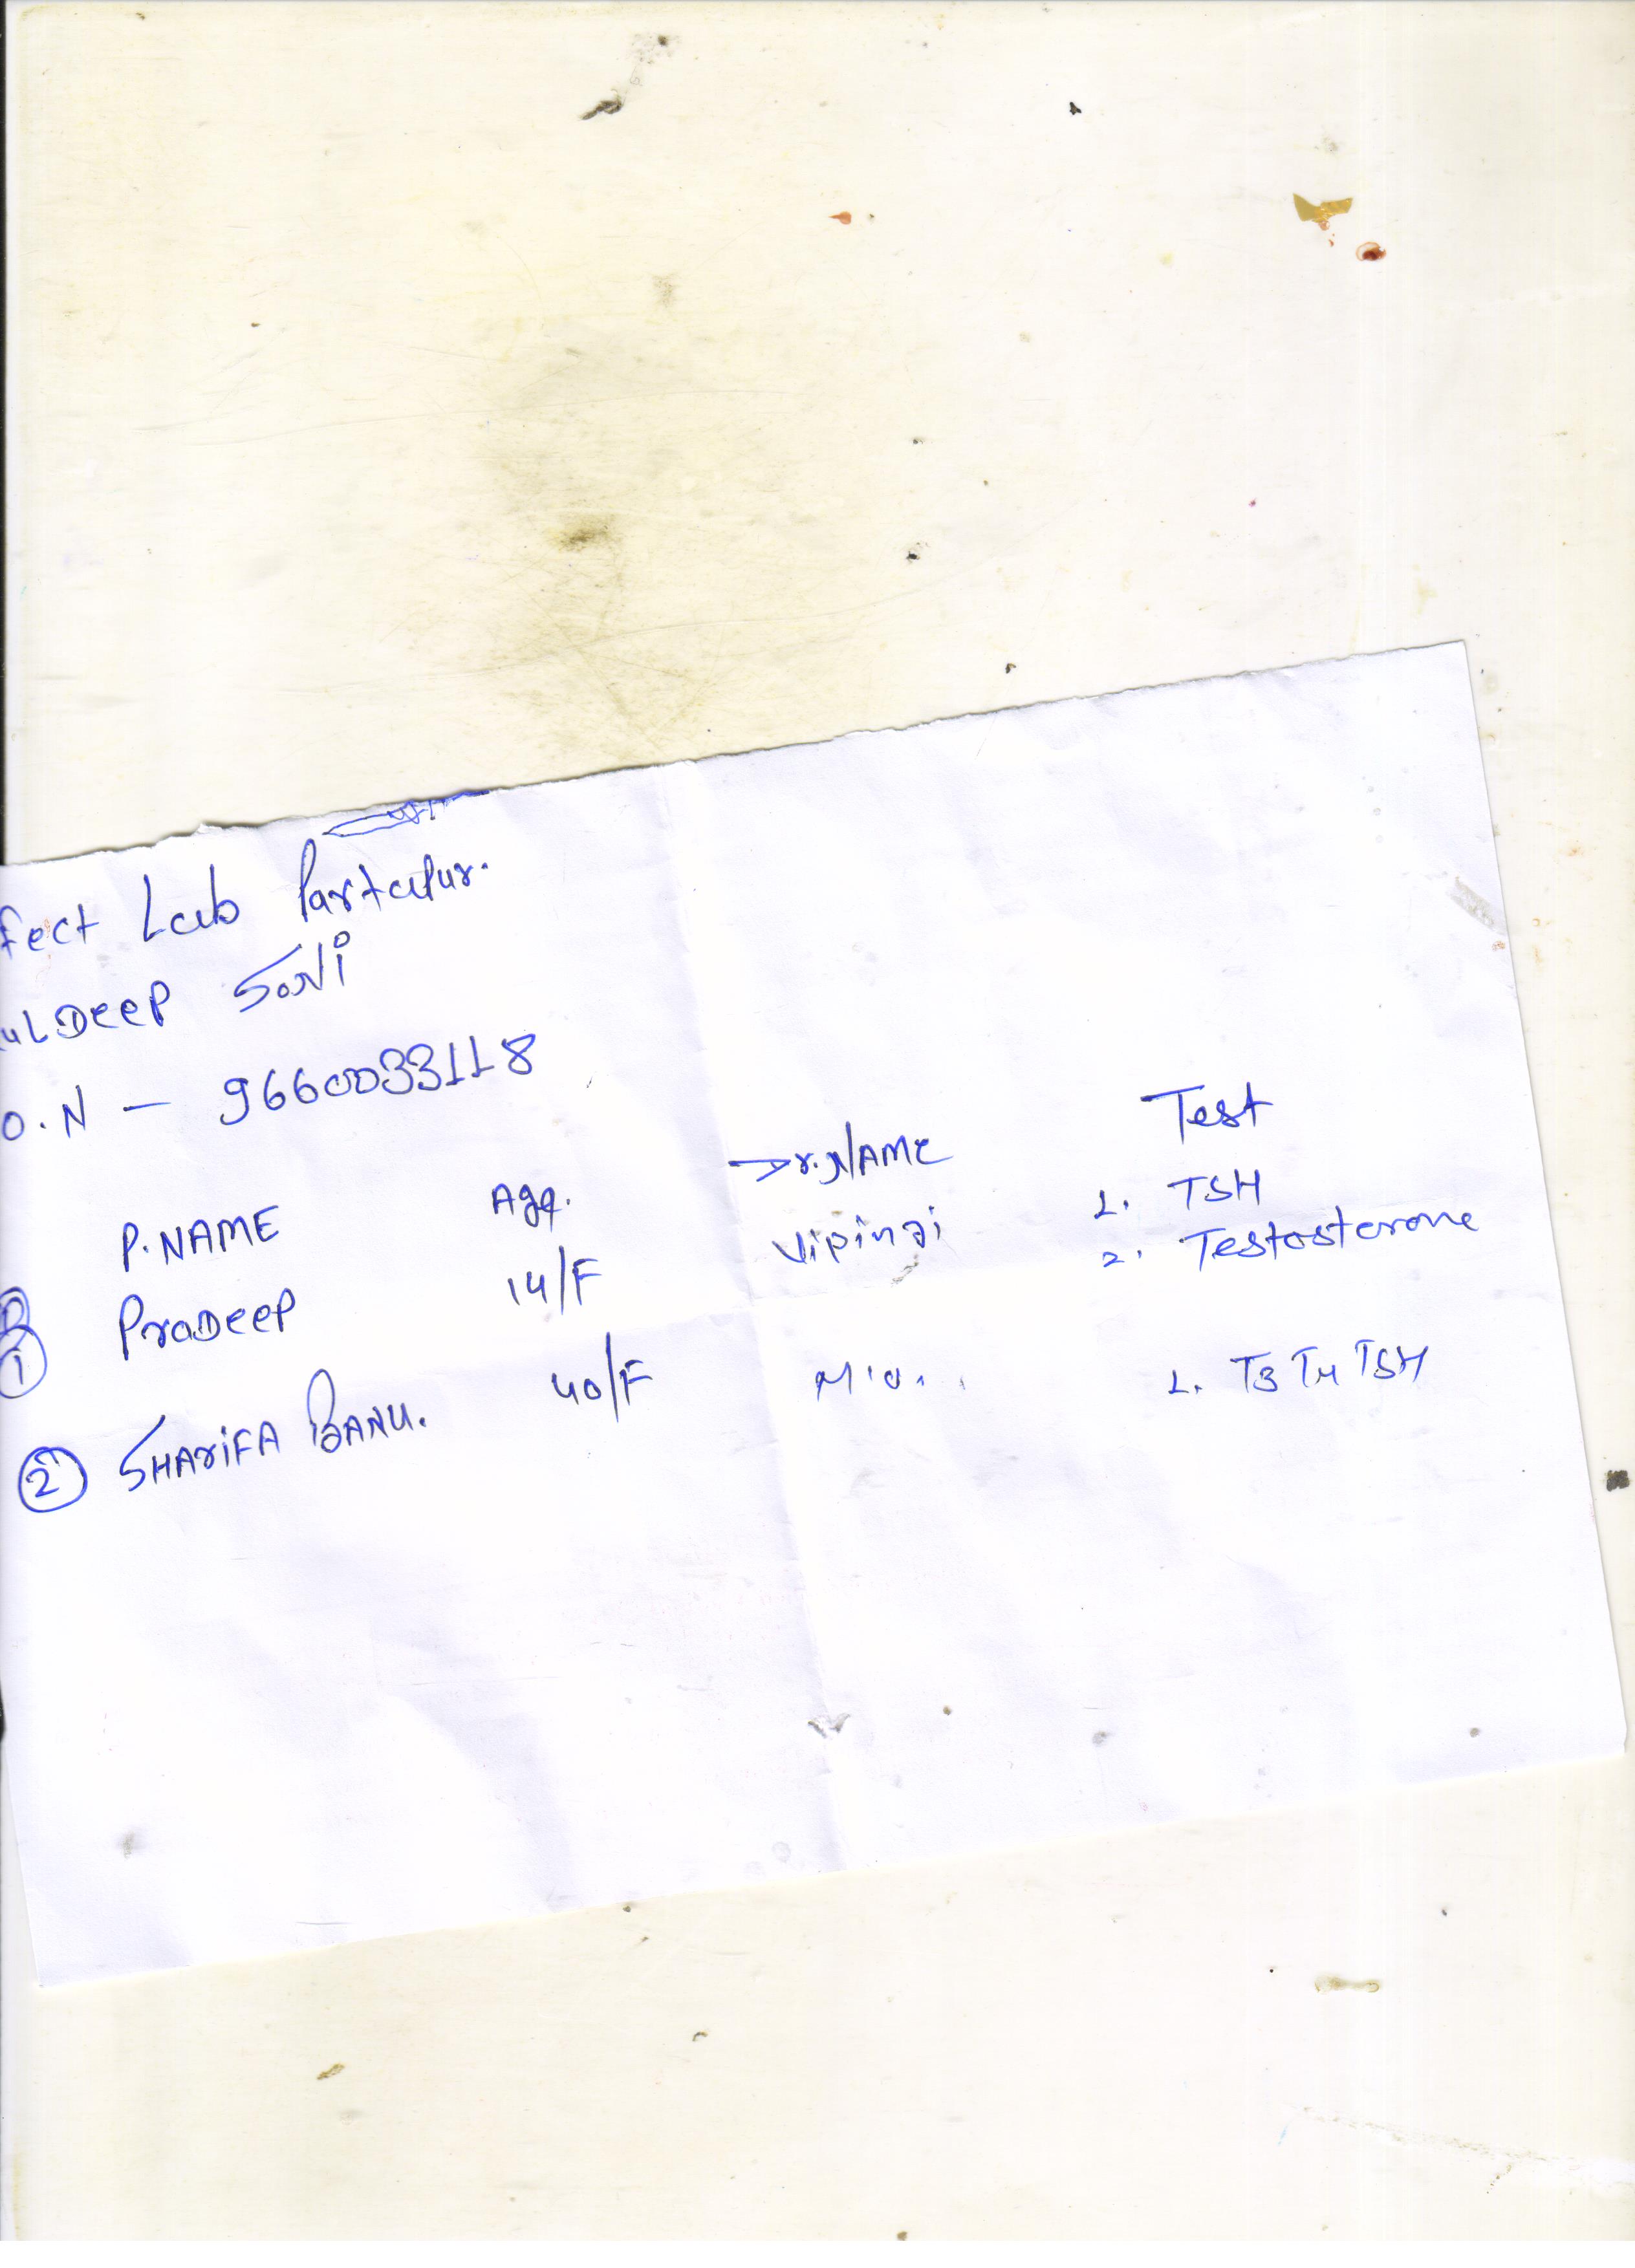 fect Lab Partapur.
ulDeep Soni
o.N - 9660033118
P.NAME Age. Dr.NAME Test
1 PraDeep 14/F Vipinji 1. TSH
2. Testosterone
2 SHAriFA BANU. 40/F 1. T3 T4 TSH